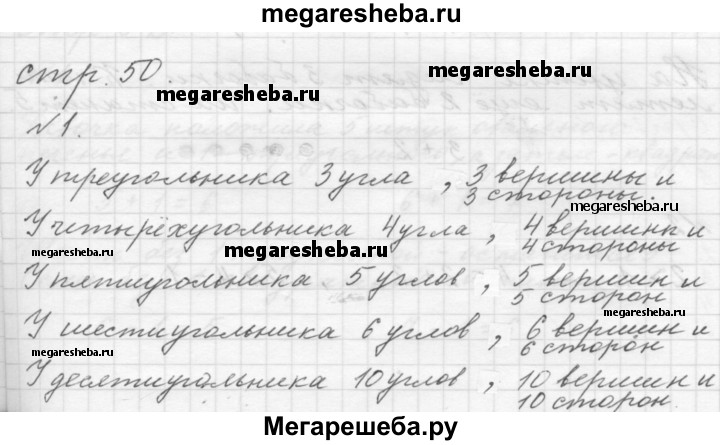 megaresheba.ru
стр. 50.
megaresheba.ru
megaresheba.ru
№1.
У треугольника 3 угла, 3 вершины и
3 стороны.
У четырёхугольника 4 угла, 4 вершины и
4 стороны
megaresheba.ru
megaresheba.ru
megaresheba.ru
У пятиугольника 5 углов, 5 вершин и
5 сторон
megaresheba.ru
У шестиугольника 6 углов, 6 вершин и
6 сторон
megaresheba.ru
megaresheba.ru
У десятиугольника 10 углов, 10 вершин и
10 сторон.
Мегарешеба.ру